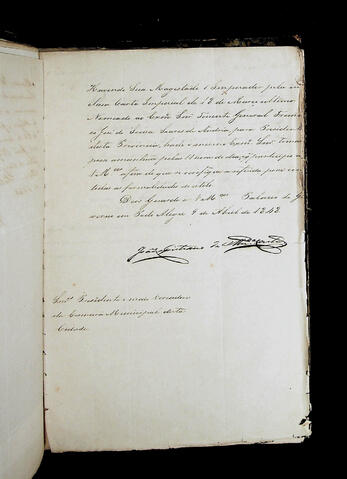 Havendo Sua Magestade o Imperador pela
Sua Carta Imperial de de Março ultimo
Nomeado ao Exmo Snr Tenente General Francisco
José de Souza Soares de Andréa, para Presidente
desta Provincia, e o mesmo Exmo Snr tomar
posse amanhãa pelas 11 horas do dia, o participo a
V Mces afim de que se verifique a referida posse com
todas as formalidades do estilo.
Deos Guarde a V Mces Palacio do Go
verno em Porto Alegre 9 de Abril de 1848
João Capistrano de
Snres Presidente e mais Vereadores
da Camara Municipal desta
Cidade